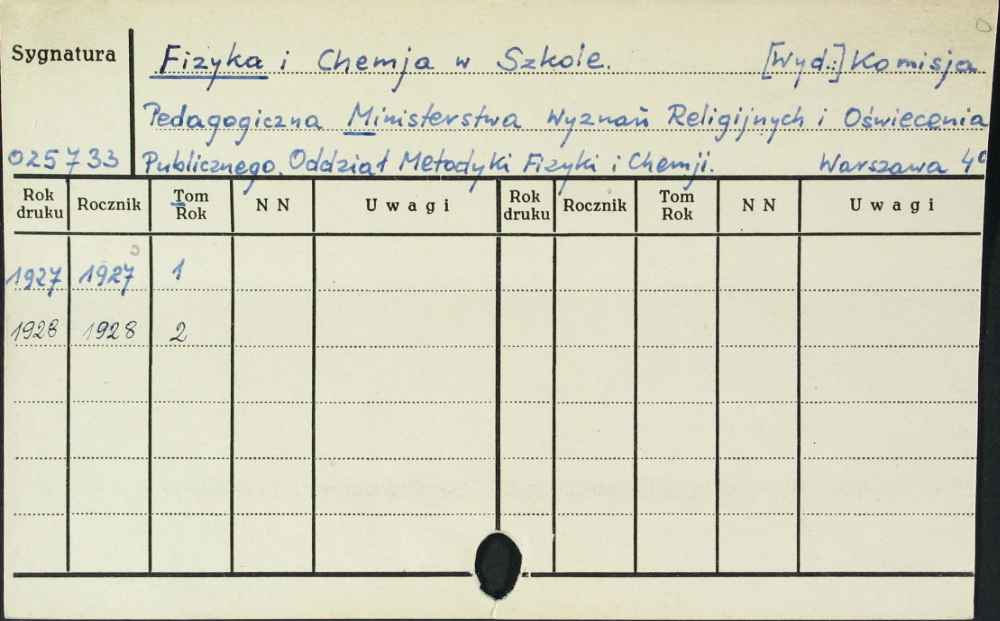 Sygnatura Fizyka i Chemja w Szkole. [Wyd.:] Komisja
Pedagogiczna Ministerstwa Wyznań Religijnych i Oświecenia
025733 Publicznego. Oddział Metodyki Fizyki i Chemji. Warszawa 4°
Rok druku Rocznik Tom Rok N N Uwagi Rok druku Rocznik Tom Rok N N Uwagi
1927 1927 1
1928 1928 2